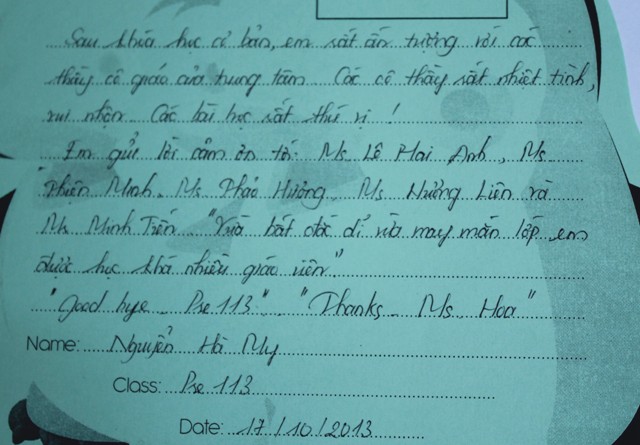 Sau khóa học cơ bản, em rất ấn tượng với các
thầy cô giáo của trung tâm. Các cô thầy rất nhiệt tình,
vui nhộn. Các bài học rất thú vị !
Em gửi lời cảm ơn tới Ms Lê Hoai Anh, Ms
Thiên Minh, Ms Thảo Hương, Ms Hường Liên và
Mr Minh Tiến. "Vừa bất đắc dĩ vừa may mắn lớp em
được học khá nhiều giáo viên"
"Good bye Pre 113" "Thanks Ms Hoa"
Name: Nguyễn Hà My
Class: Pre 113
Date: 17/10/2013